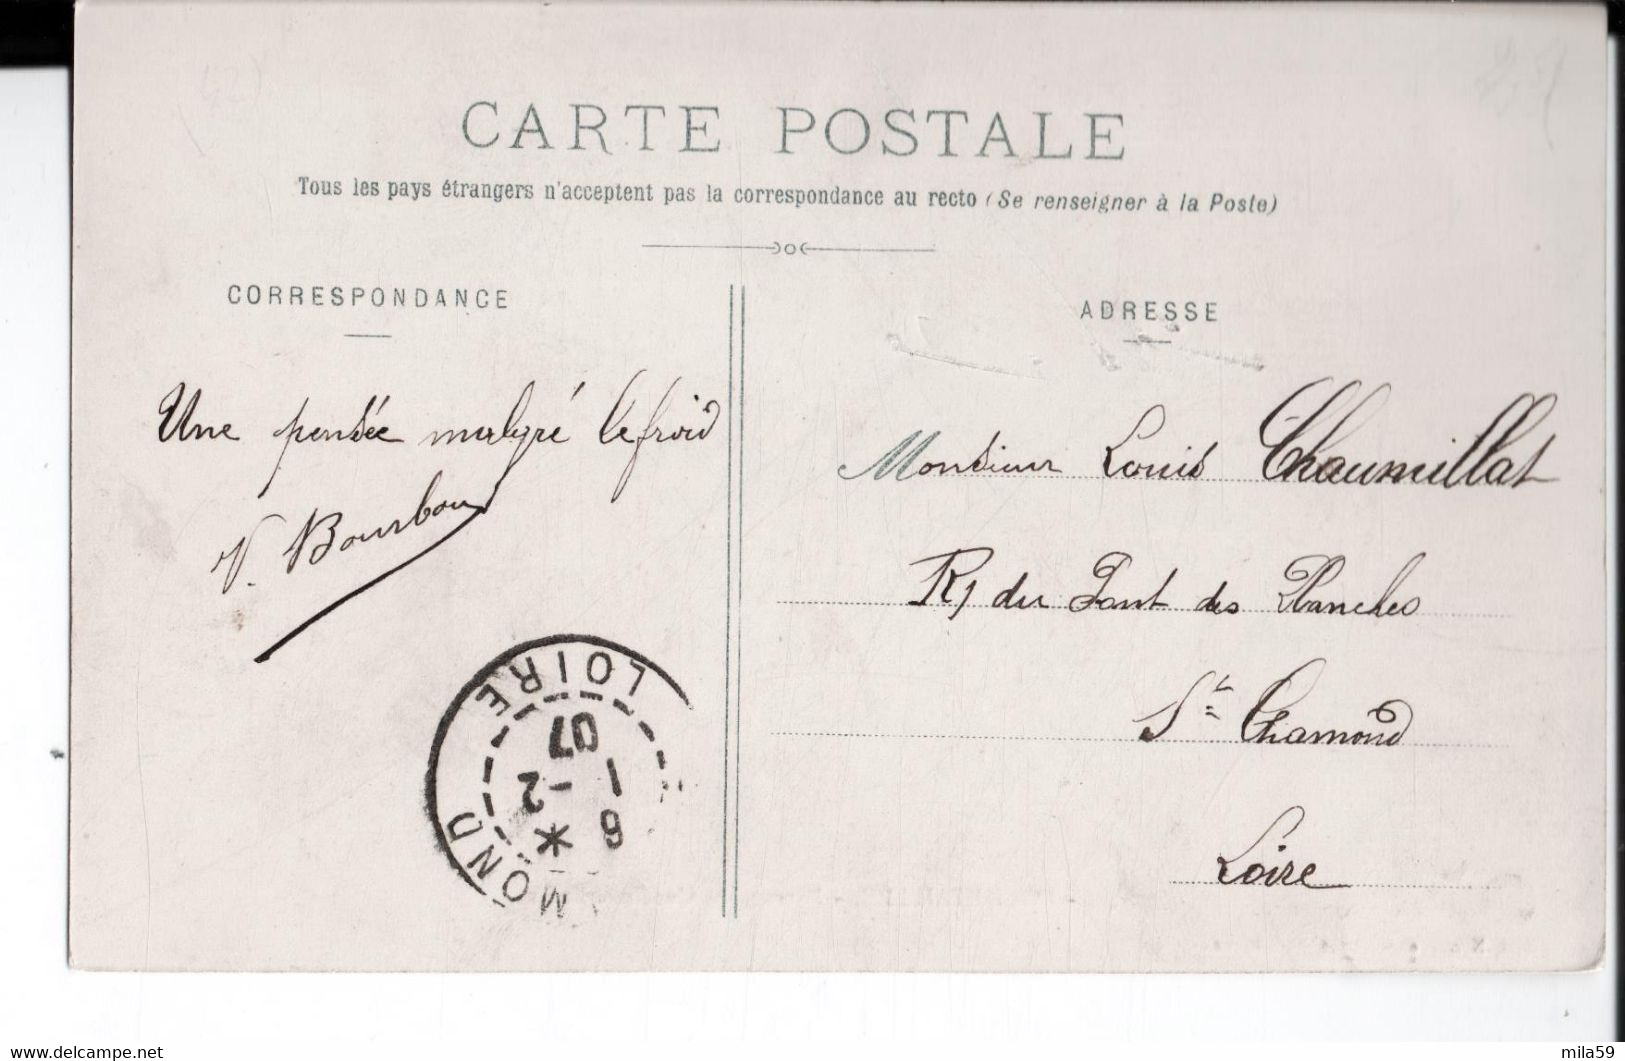 CARTE POSTALE
Tous les pays étrangers n'acceptent pas la correspondance au recto (Se renseigner à la Poste)
CORRESPONDANCE
Une pensée malgré le froid
V. Bourbon
ADRESSE
Monsieur Louis Chaumillat
R/ du Pont des Planches
St Chamond
Loire
MOND LOIRE
6 - 2
07
delcampe.net
mila59